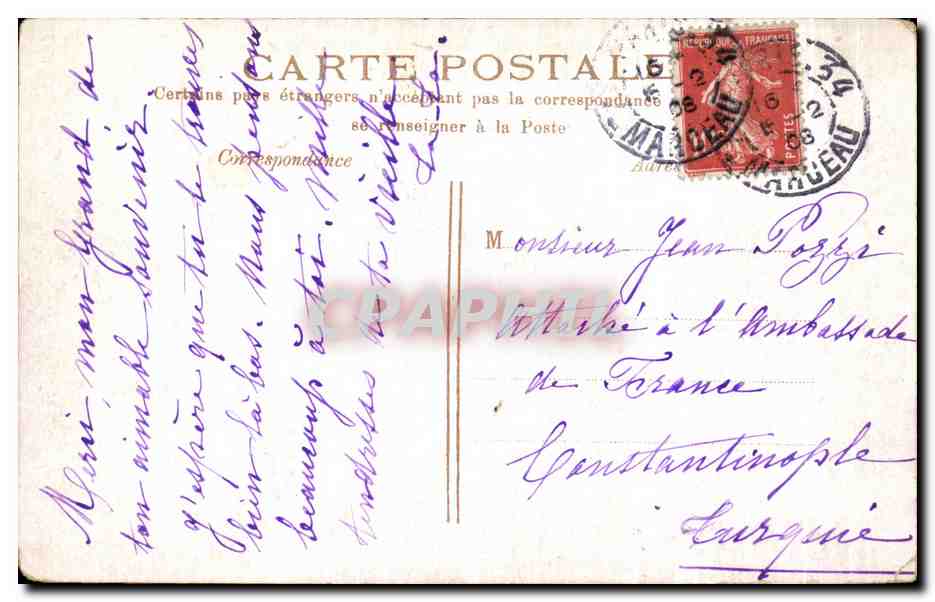 CARTE POSTALE
Certains pays étrangers n'acceptant pas la correspondance
se renseigner à la Poste
Correspondance
REPUBLIQUE FRANÇAISE
POSTES
MARCEAU
MARCEAU
34
Merci, mon grand de
ton aimable souvenir
j'espère que tu te trouves
bien là bas. Nous pensons
beaucoup à toi. Mille
tendresses de ta vieille
Monsieur Jean Pozzi
Attaché à l'Ambassade
de France
Constantinople
Turquie
CRAPHEL